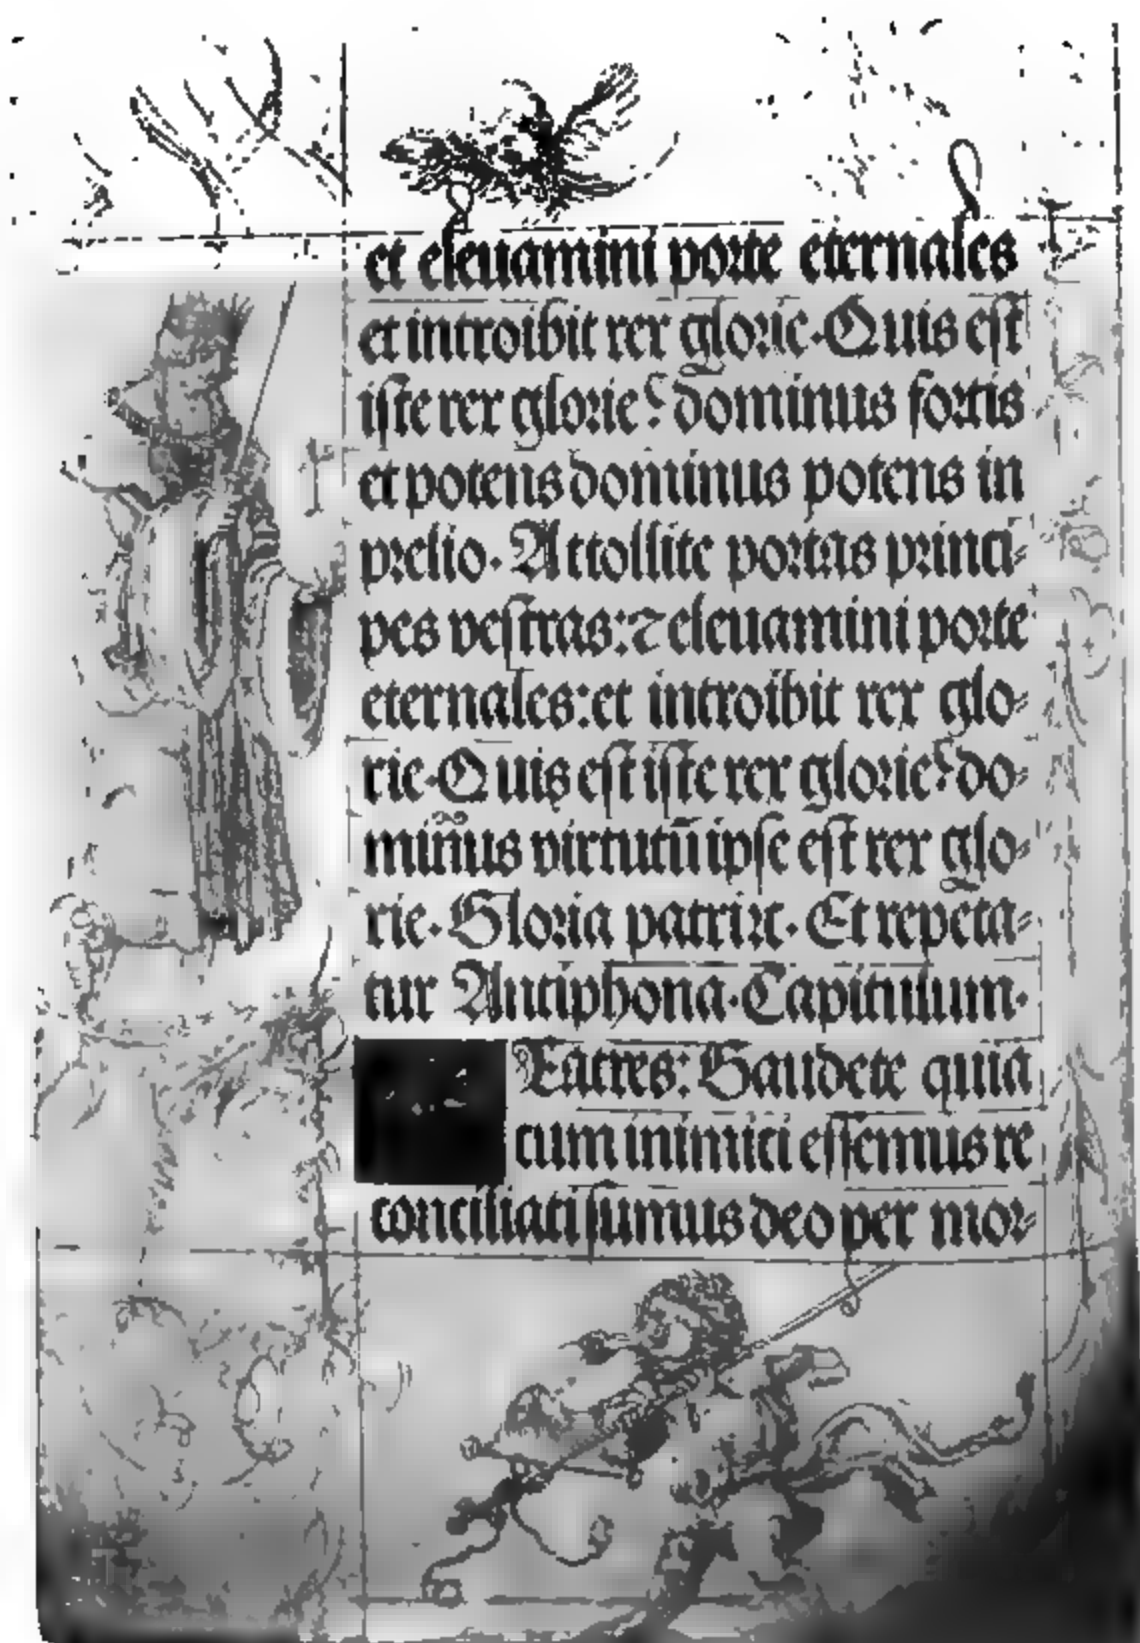 et eleuamini porte eternales
et introibit rex glorie. Quis est
iste rex glorie? dominus fortis
et potens dominus potens in
prelio. Attollite portas princi⸗
pes vestras: ⁊ eleuamini porte
eternales: et introibit rex glo⸗
rie. Quis est iste rex glorie? do⸗
minus virtutū ipse est rex glo⸗
rie. Gloria patri ⁊c. Et repeta⸗
tur Antiphona. Capitulum.
Ratres: Gaudete quia
cum inimici essemus re
conciliati sumus deo per mor⸗